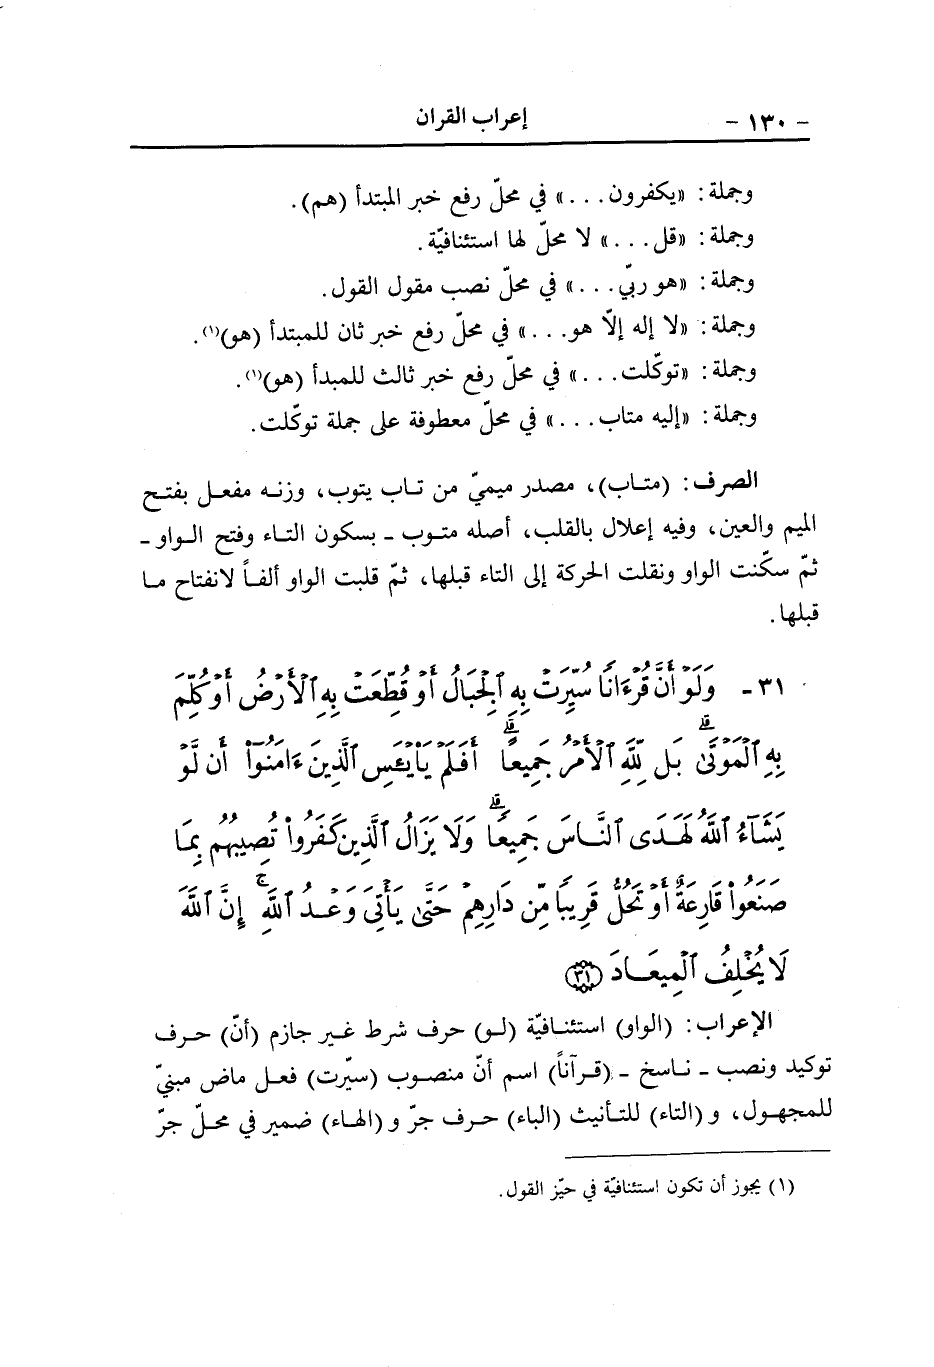 - ١٣٠ - إعراب القران
وجملة: «يكفرون...» في محلّ رفع خبر المبتدأ (هم).
وجملة: «قل...» لا محلّ لها استئنافيّة.
وجملة: «هو ربّي...» في محلّ نصب مقول القول.
وجملة: «لا إله إلاّ هو...» في محلّ رفع خبر ثان للمبتدأ (هو)(١).
وجملة: «توكّلت...» في محلّ رفع خبر ثالث للمبدأ (هو)(١).
وجملة: «إليه متاب...» في محلّ معطوفة على جملة توكّلت.
الصرف: (متاب)، مصدر ميميّ من تاب يتوب، وزنه مفعل بفتح
الميم والعين، وفيه إعلال بالقلب، أصله متوب - بسكون التاء وفتح الواو -
ثمّ سكّنت الواو ونقلت الحركة إلى التاء قبلها، ثمّ قلبت الواو ألفاً لانفتاح ما
قبلها.
٣١ - وَلَوْ أَنَّ قُرْءَانًا سُيِّرَتْ بِهِ ٱلْجِبَالُ أَوْ قُطِّعَتْ بِهِ ٱلْأَرْضُ أَوْ كُلِّمَ
بِهِ ٱلْمَوْتَىٰ ۗ بَل لِّلَّهِ ٱلْأَمْرُ جَمِيعًا ۗ أَفَلَمْ يَاْيْـَٔسِ ٱلَّذِينَ ءَامَنُوٓا۟ أَن لَّوْ
يَشَآءُ ٱللَّهُ لَهَدَى ٱلنَّاسَ جَمِيعًا ۗ وَلَا يَزَالُ ٱلَّذِينَ كَفَرُوا۟ تُصِيبُهُم بِمَا
صَنَعُوا۟ قَارِعَةٌ أَوْ تَحُلُّ قَرِيبًا مِّن دَارِهِمْ حَتَّىٰ يَأْتِىَ وَعْدُ ٱللَّهِ ۚ إِنَّ ٱللَّهَ
لَا يُخْلِفُ ٱلْمِيعَادَ (٣١)
الإعراب: (الواو) استئنافيّة (لو) حرف شرط غير جازم (أنّ) حرف
توكيد ونصب - ناسخ - (قرآناً) اسم أنّ منصوب (سيّرت) فعل ماض مبنيّ
للمجهول، و(التاء) للتأنيث (الباء) حرف جرّ و(الهاء) ضمير في محلّ جرّ
(١) يجوز أن تكون استئنافيّة في حيّز القول.